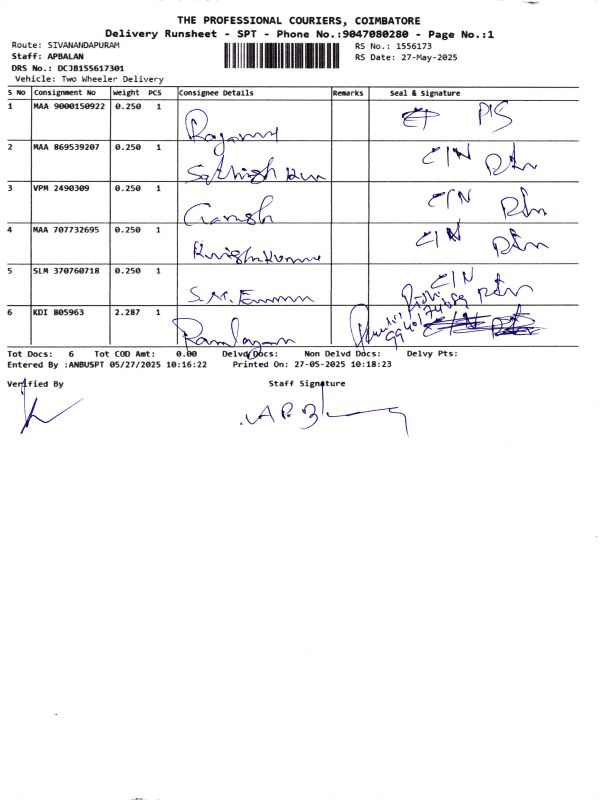 THE PROFESSIONAL COURIERS, COIMBATORE
Delivery Runsheet - SPT - Phone No.:9047080280 - Page No.:1
Route: SIVANANDAPURAM
RS No.: 1556173
Staff: APBALAN
RS Date: 27-May-2025
DRS No.: DCJB155617301
Vehicle: Two Wheeler Delivery
S No Consignment No Weight PCS Consignee Details Remarks Seal & Signature
1 MAA 9000150922 0.250 1
2 MAA 869539207 0.250 1 C/N
3 VPM 2490309 0.250 1 Ganesh C/N
4 MAA 707732695 0.250 1 C/N
5 SLM 370760718 0.250 1 C/N
6 KDI 805963 2.287 1
Tot Docs: 6 Tot COD Amt: 0.00 Delvd Docs: Non Delvd Docs: Delvy Pts:
Entered By :ANBUSPT 05/27/2025 10:16:22 Printed On: 27-05-2025 10:18:23
Verified By Staff Signature